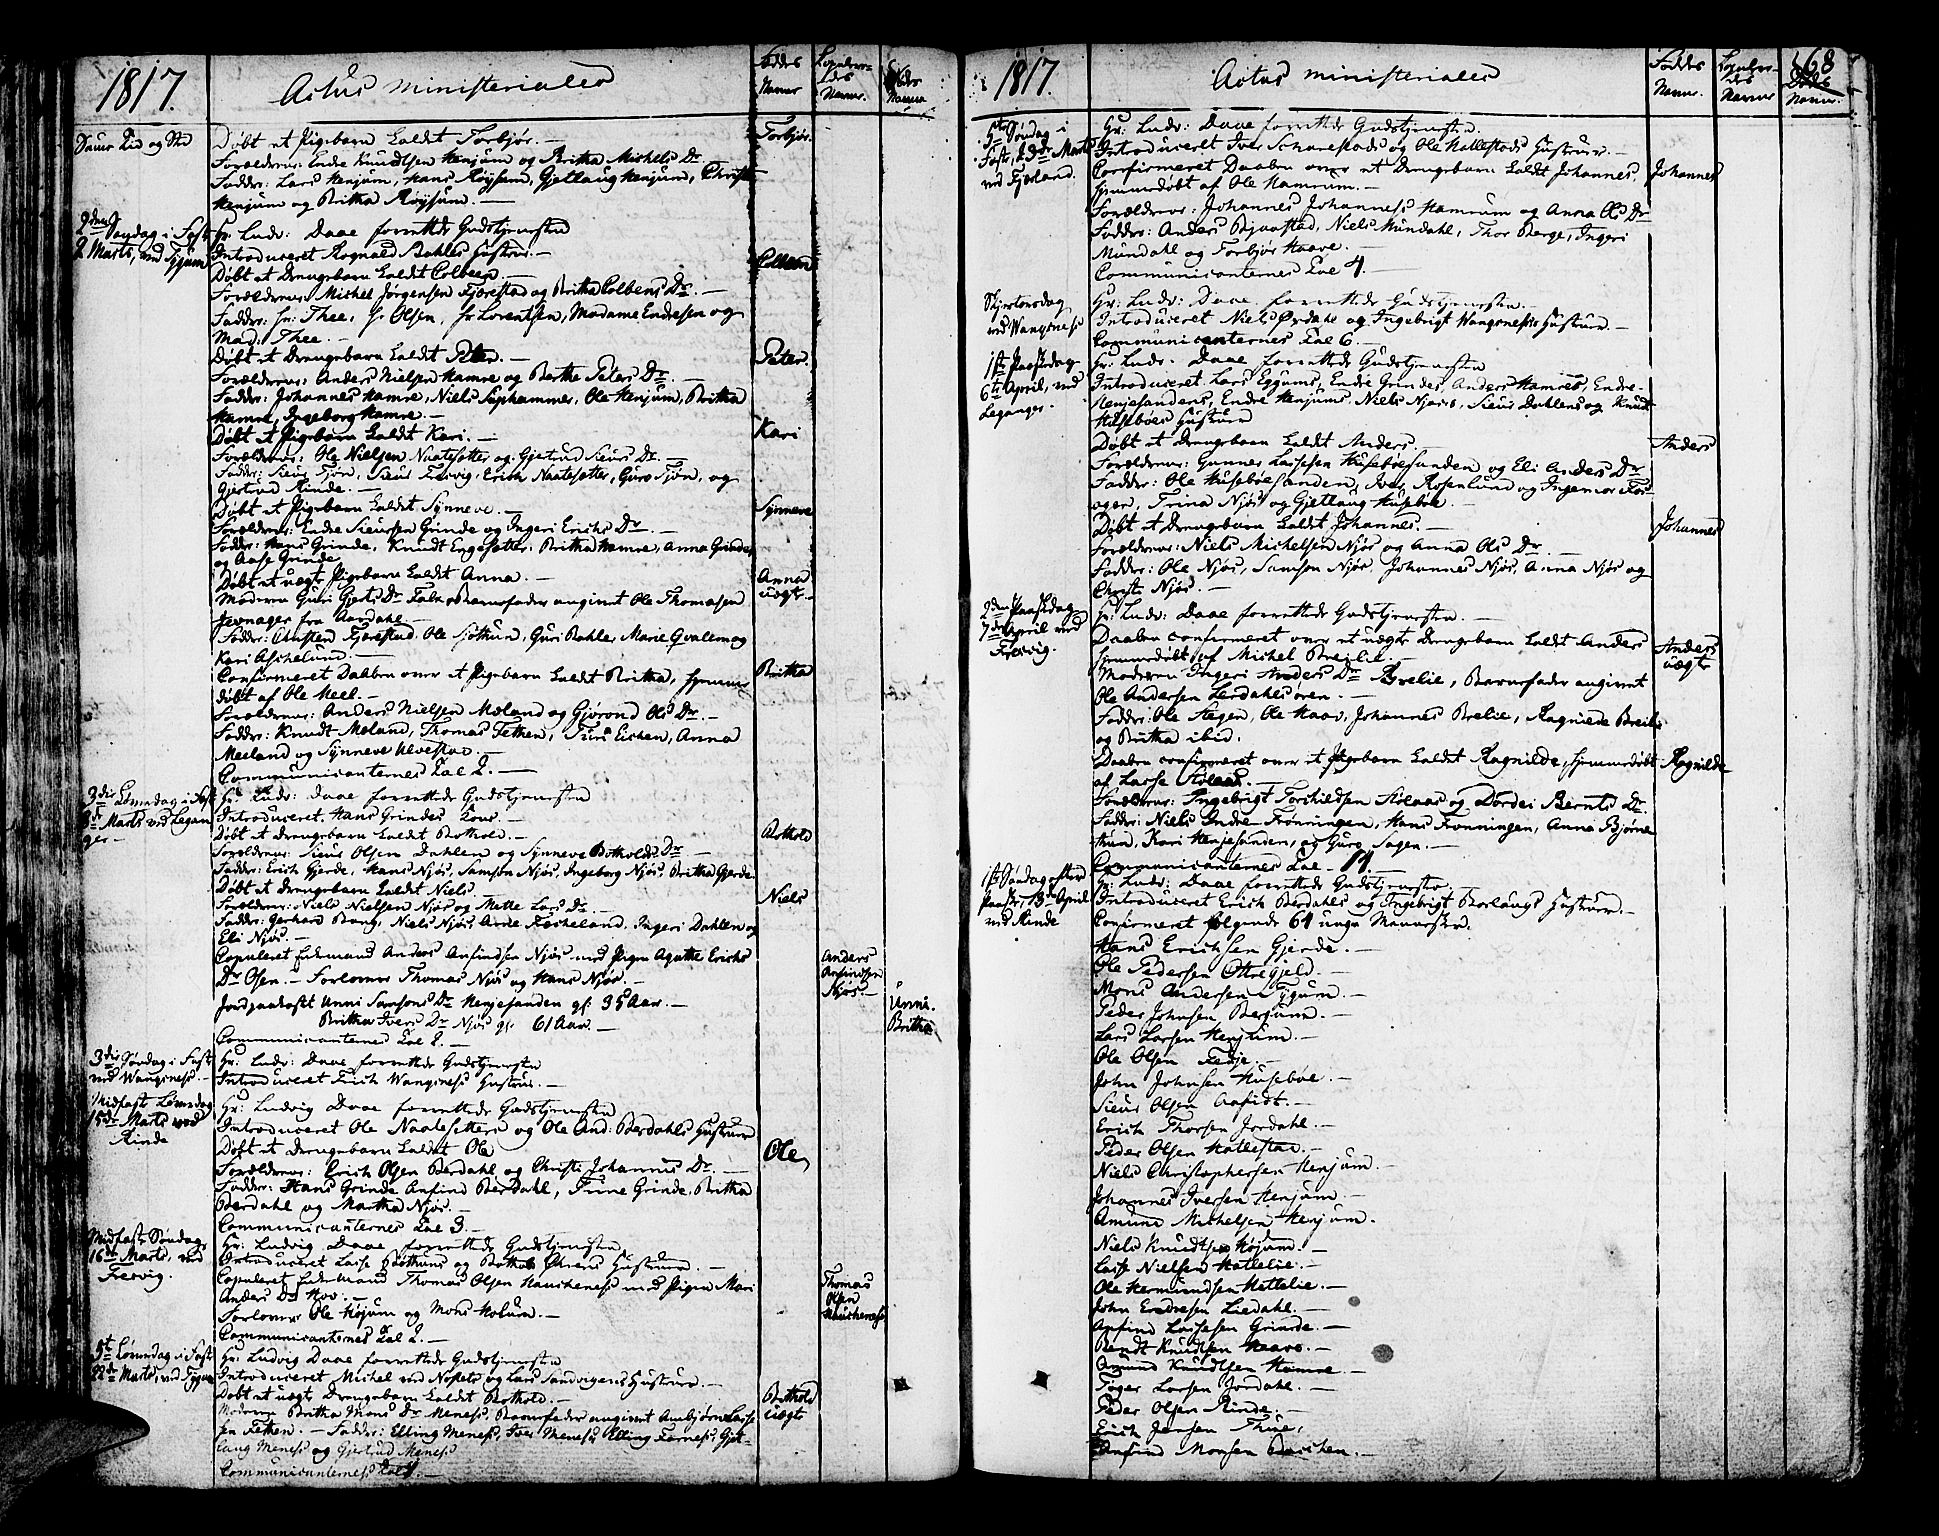 1817.
Actus ministeriales
Fødtes Navne
Copuleredes Navne.
Dødes Navne
Samme Tid og Sted
Døbt et Pigebarn kaldet Torbjør. —
Torbjør.
Forældrene: Endre Knudtsen Henjum og Britha Michels Dr.
Faddre: Lars Henjum, Hans Röysum, Gjetlaug Henjum, Christi
Henjum og Britha Röysum. —
2den Søndag i Fast
2 Marts, ved Tygum
Hr: Ludv: Daae forrettede Gudstjenesten
Introduceret Rognald Bahles Hustrue. —
Døbt et Drengebarn kaldet Colbeen. —
Colbeen
Forældrene: Michel Jørgensen Fjærestad og Britha Colbens Dr. —
Faddre: Hr: Thee, Hr Olsen, Hr Lorentsen, Madame Endresen og
Mad: Thee. —
Døbt et Drengebarn kaldet Peter. —
Peter.
Forældrene: Anders Nielsen Hamre og Berthe Peters Dr. —
Faddre: Johannes Hamre, Niels Suphammer, Ole Henjum, Britha
Hamre, Ingeborg Hamre. —
Døbt et Pigebarn kaldet Kari. —
Kari
Forældrene: Ole Nielsen Naatesetter og Gjetrud Siurs Dr. —
Faddre: Siur Tjørn, Siur Fresvig, Erich Naatesetter, Guro Tjørn, og
Gjertrud Rinde. —
Døbt et Pigebarn kaldet Synneve. —
Synneve
Forældrene: Endre Siursen Grinde og Ingeri Erichs Dr. —
Faddre: Hans Grinde, Knudt Engesetter, Britha Hamre, Anna Grinde
og Aase Grinde
Døbt et uægte Pigebarn kaldet Anna. —
Anna uægte.
Moderen Guri Gjerts Dr Fale, Barnefader angivet Ole Thomasen
fra Aardahl. —
Faddre: Christen Fjærestad, Ole Sjøthun, Guri Bahle, Marie Qvalem og
Kari Aschelund. —
Confirmeret Daaben over et Pigebarn kaldet Britha, hjemme
Britha
døbt af Ole Meel. —
Forældrene: Anders Nielsen Mæland og Gjørond Ols Dr. —
Faddre: Knudt Mæland, Thomas Fethen, Guri Eichen, Anna
Meeland og Synneve Ulvestad. —
Communicanternes Tal 2. —
3die Løverdag i Fast
8de Marts ved Legan-
ger —
Hr: Ludv: Daae forrettede Gudstjenesten
Introduceret Hans Grindes Kone. —
Døbt et Drengebarn kaldet Bothold. —
Bothold
Forældrene: Siur Olsen Dahlen og Synneve Botholds Dr —
Faddre: Erich Gjerde, Hans Njøs, Samson Njøs, Ingeborg Njøs, Britha Gjerde
Døbt et Drengebarn kaldet Niels. —
Niels
Forældrene: Niels Nielsen Njøs og Mette Lars Dr. —
Faddre: Gerhard Bang, Niels Njøs, Arne Fischeland, Ingeri Dahlen og
Eli Njøs. —
Copuleret Enkemand Anders Anfindsen Njøs med Pigen Agathe Erichs
Anders Anfindsen Njøs. —
Dr Olsen. — Forlovere Thomas Njøs og Hans Njøs. —
Jordpaakastet Unni Samsons Dr Henjesanden gl: 35 Aar. —
Unni.
Britha Ivers Dr Njøs gl: 61 Aar. —
Britha
Communicanternes Tal 2. —
3die Søndag i Fast
ved Wangsness. —
Hr: Ludv: Daae forrettede Gudstjenesten
Introduceret Erich Wangsness Hustrue. —
Midfaste Løverdag
15de Marts ved
Rinde
Hr: Ludvig Daae forrettede Gudstjenesten
Introduceret Ole Naatesetters og Ole And: Berdahls Hustruer
Døbt et Drengebarn kaldet Ole
Ole
Forældrene: Erich Olsen Berdahl og Christi Johannis Dr. —
Faddre: Hans Grinde, Anfind Berdahl, Trine Grinde, Britha
Berdahl og Martha Njøs. —
Communicanternes Tal 3. —
Midfaste Søndag,
16de Marts, ved
Fresvig.
Hr: Ludvig Daae forrettede Gudstjenesten
Introduceret Lasse Bøthuns og Bothol Øhrens Hustruer. —
Copuleret Enkemand Thomas Olsen Nauskeness med Pigen Mari
Thomas Olsen Nauskeness
Anders Dr Hov. —
Forlovere Ole Højum og Mons Holum. —
Communicanternes Tal 2. —
5te Løverdag i Fast
22de Marts, ved Tygum
Hr: Ludvig Daae forrettede Gudstjenesten
Introduceret Michel ved Nosets og Lars Sandvigens Hustruer. —
Døbt et uægte Drengebarn kaldet Bothold. —
Bothold uægte
Moderen Britha Mons Dr Meness, Barnefader angivet Ambjørn Lasse
sen Fethen. — Faddre: Elling Meness, Iver Meness, Elling Farness, Gjet-
laug Meness og Gjertrud Meness
Communicanternes Tal 4. —
1817.
Actus ministeriales
Fødtes Navne.
Copuleredes Navne
68
Dødes Navne.
5te Søndag i
Fast, 23de Marts
ved Fjærland.
Hr: Ludv: Daae forrettede Gudstjenesten.
Introduceret Iver Scharestads og Ole Hattestads Hustruer. —
Confirmeret Daaben over et Drengebarn kaldet Johannes,
Johannes
hjemmedøbt af Ole Hamrum. —
Forældrene: Johannes Johanness Hamrum og Anna Ols Dr
Faddre: Anders Bjaastad, Niels Mundahl, Thor Berge, Ingeri
Mundahl og Torbjør Haave. —
Communicanternes Tal 4. —
Skjertorsdag
ved Wangsness
Hr: Ludv: Daae forrettede Gudstjenesten. —
Introduceret Niels Ørdahls og Ingebrigt Wangsness Hustruer. —
Communicanternes Tal 6. —
1ste Paaskedag
6te April, ved
Leganger.
Hr: Ludv: Daae forrettede Gudstjenesten
Introduceret Lars Eggums, Endre Grindes, Anders Hamres, Endre
Henjesandens, Endre Henjums, Niels Njøs's, Siur Dahlens og Knudt
Husebøes Hustruer
Døbt et Drengebarn kaldet Anders. —
Anders
Forældrene: Gunner Lassesen Husebøesanden og Eli Anders Dr
Faddre: Ole Husebøesanden, Iver Rosenlund og Ingemor
Trina Njøs og Gjetlaug Husebøe. —
Døbt et Drengebarn kaldet Johannes. —
Johannes
Forældrene: Niels Michelsen Njøs og Anna Ols Dr. —
Faddre: Ole Njøs, Samson Njøs, Johannes Njøs, Anna Njøs og
Christi Njøs. —
2den Paaskedag
7de April ved
Fresvig.
Hr: Ludv: Daae forrettede Gudstjenesten. —
Daaben confirmeret over et uægte Drengebarn kaldet Anders
Anders uægte
hjemmedøbt af Michel Breilie. —
Moderen Ingeri Anders Dr Brelie, Barnefader angivet
Ole Andersen Lerdahlsøren. —
Faddre: Ole Stegen, Ole Haav, Johannes Brelie, Ragnilde Breilie
og Britha ibid. —
Daaben confirmeret over et Pigebarn kaldet Ragnilde, hjemmedøbt
Ragnilde
af Lasse Stølaas. —
Forældrene: Ingebrigt Torchildsen Stølaas og Dordei Bernts Dr
Faddre: Niels Indre Frønningen, Hans Frønningen, Anna Bjørne
thun, Kari Henjesanden, og Guro Sagen. —
Communicanternes Tal 14. —
1ste Søndag efter
Paaske, 13de April
ved Rinde
Hr: Ludv: Daae forrettede Gudstjenesten.
Introduceret Erich Berdahls og Ingebrigt Borlaugs Hustruer. —
Confirmeret følgende 64 unge Mennesker.
Hans Erichsen Gjerde. —
Ole Pedersen Ottregjeld. —
Mons Andersen Tygum. —
Peder Johnsen Bergum. —
Lars Larsen Henjum. —
Ole Olsen Fedje. —
John Johnsen Husebøe. —
Siur Olsen Aafedt. —
Erich Thorsen Jordahl. —
Peder Olsen Hallestad. —
Niels Christophersen Henjum. —
Johannes Iversen Henjum. —
Amund Michelsen Henjum. —
Niels Knudtsen Højum. —
Lasse Nielsen Hattelie. —
Ole Hermundsen Hattelie. —
John Endresen Liedahl. —
Anfind Lassesen Grinde. —
Bendt Knudsen Haave. —
Amund Knudtsen Hamre. —
Tøger Larsen Jordahl. —
Peder Olsen Rinde. —
Erich Jensen Thue.
Anfind Monsen —